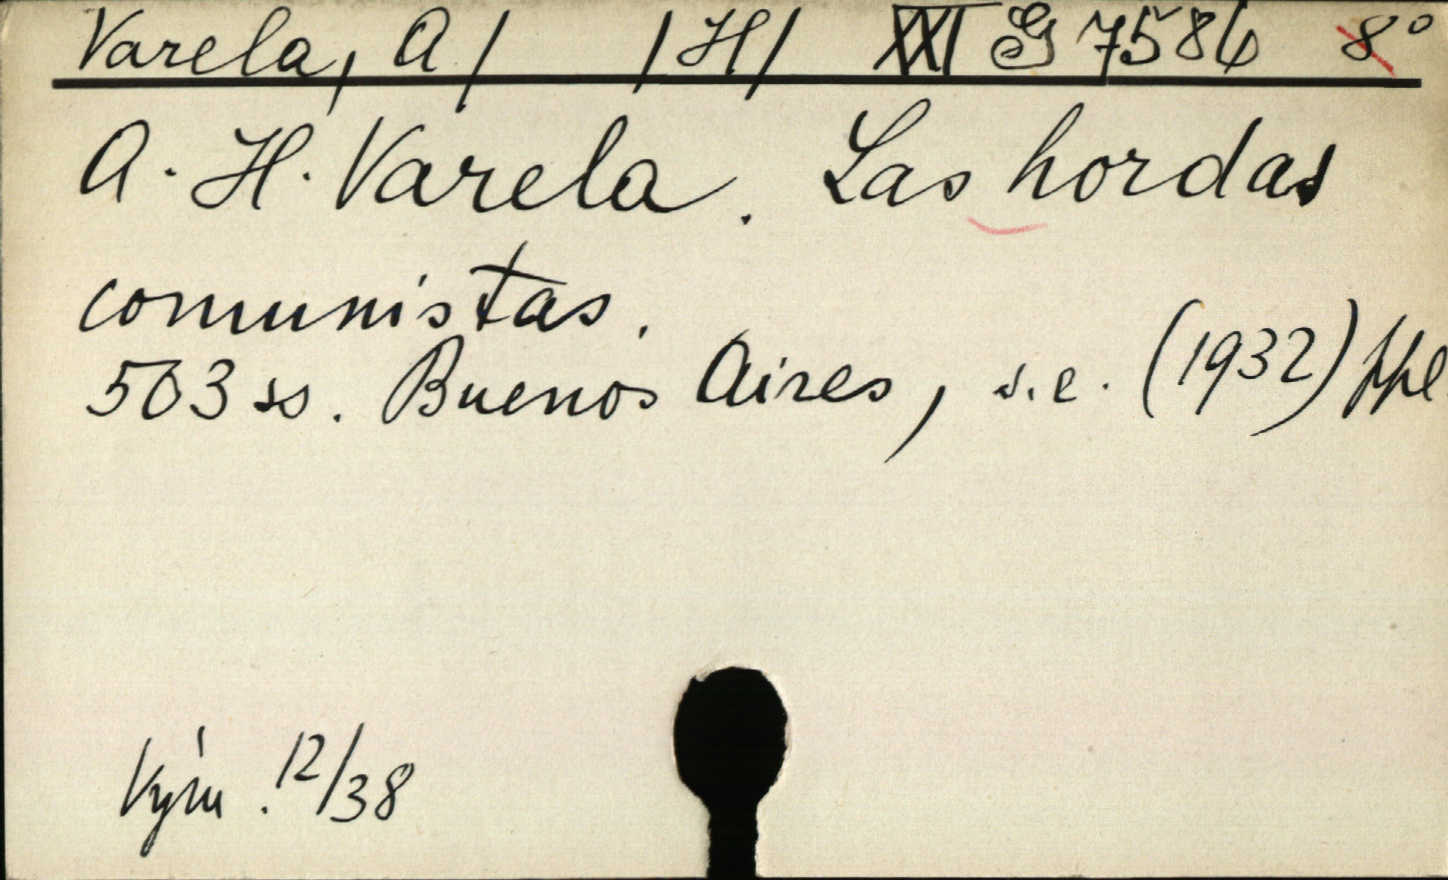 Varela, A/ /H/ XXI G 7586 8°
A. H. Varela. Las hordas
comunistas.
503 ss. Buenos Aires, s.e. (1932) ppl
Vým. 12/38